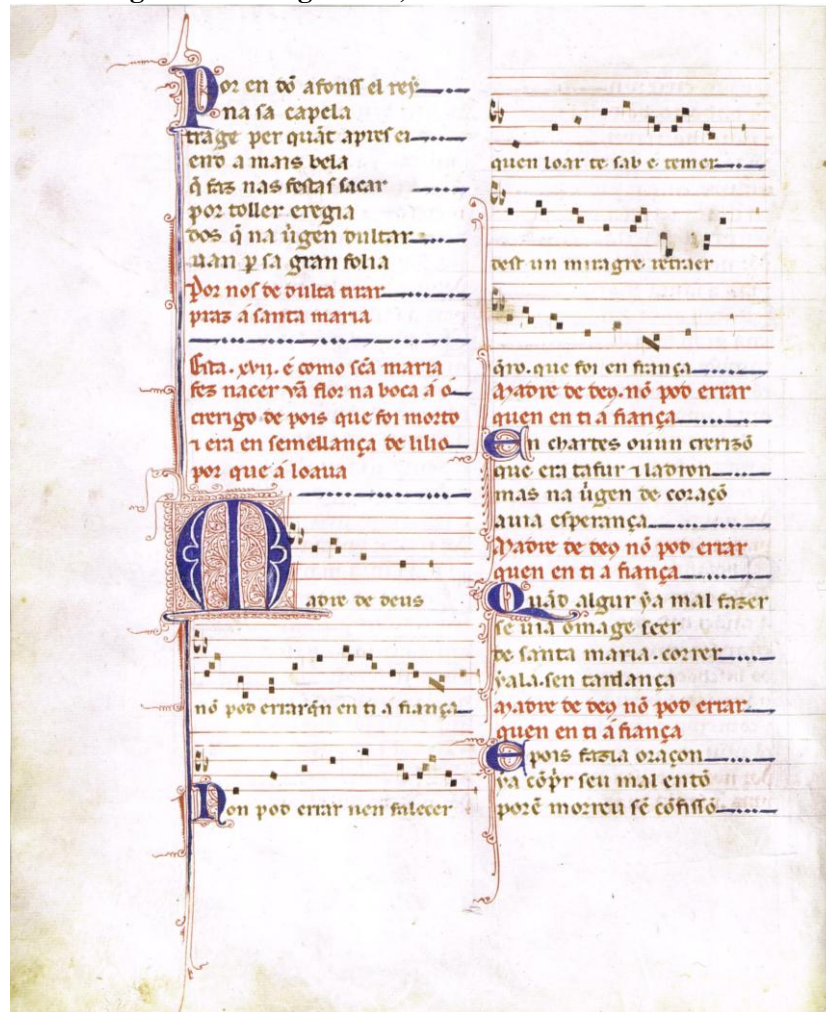 Por en dõ afonsſ el rey
na ſa capela
trage per quãt apres ei
end a mais bela
q̃ faz nas feſtas ſacar
por toller eregia
dos q̃ na ũgen dultar
uan ꝑ ſa gran folia
Por nos de dulta tirar
praz a ſanta maria
Eſta .xvij. é como ſc̃a maria
fez nacer vã flor na boca á ó
crerigo de pois que foi morto
⁊ era en ſemellança de lilio
por que á loaua
Madre de deus
nõ pod errar q̃n en ti a fiança
Non pod errar nen falecer
quen loar te ſab e temer
deſt un miragre retraer
q̃ro. que foi en frança
Madre de deꝯ. nõ pod errar
quen en ti á fiança
En chartes ouun crerizõ
que era tafur ⁊ ladron
mas na ũgen de coraçõ
auia eſperança
Madre de deꝯ nõ pod errar
quen en ti á fiança
Quãd algur ýa mal fazer
ſe uia omage ſeer
de ſanta maria. correr
ýala. ſen tardança
Madre de deꝯ nõ pod errar
quen en ti á fiança
E pois fazia oraçon
ya cõpr̃ ſeu mal entõ
porẽ morreu ſẽ cõfiſſõ